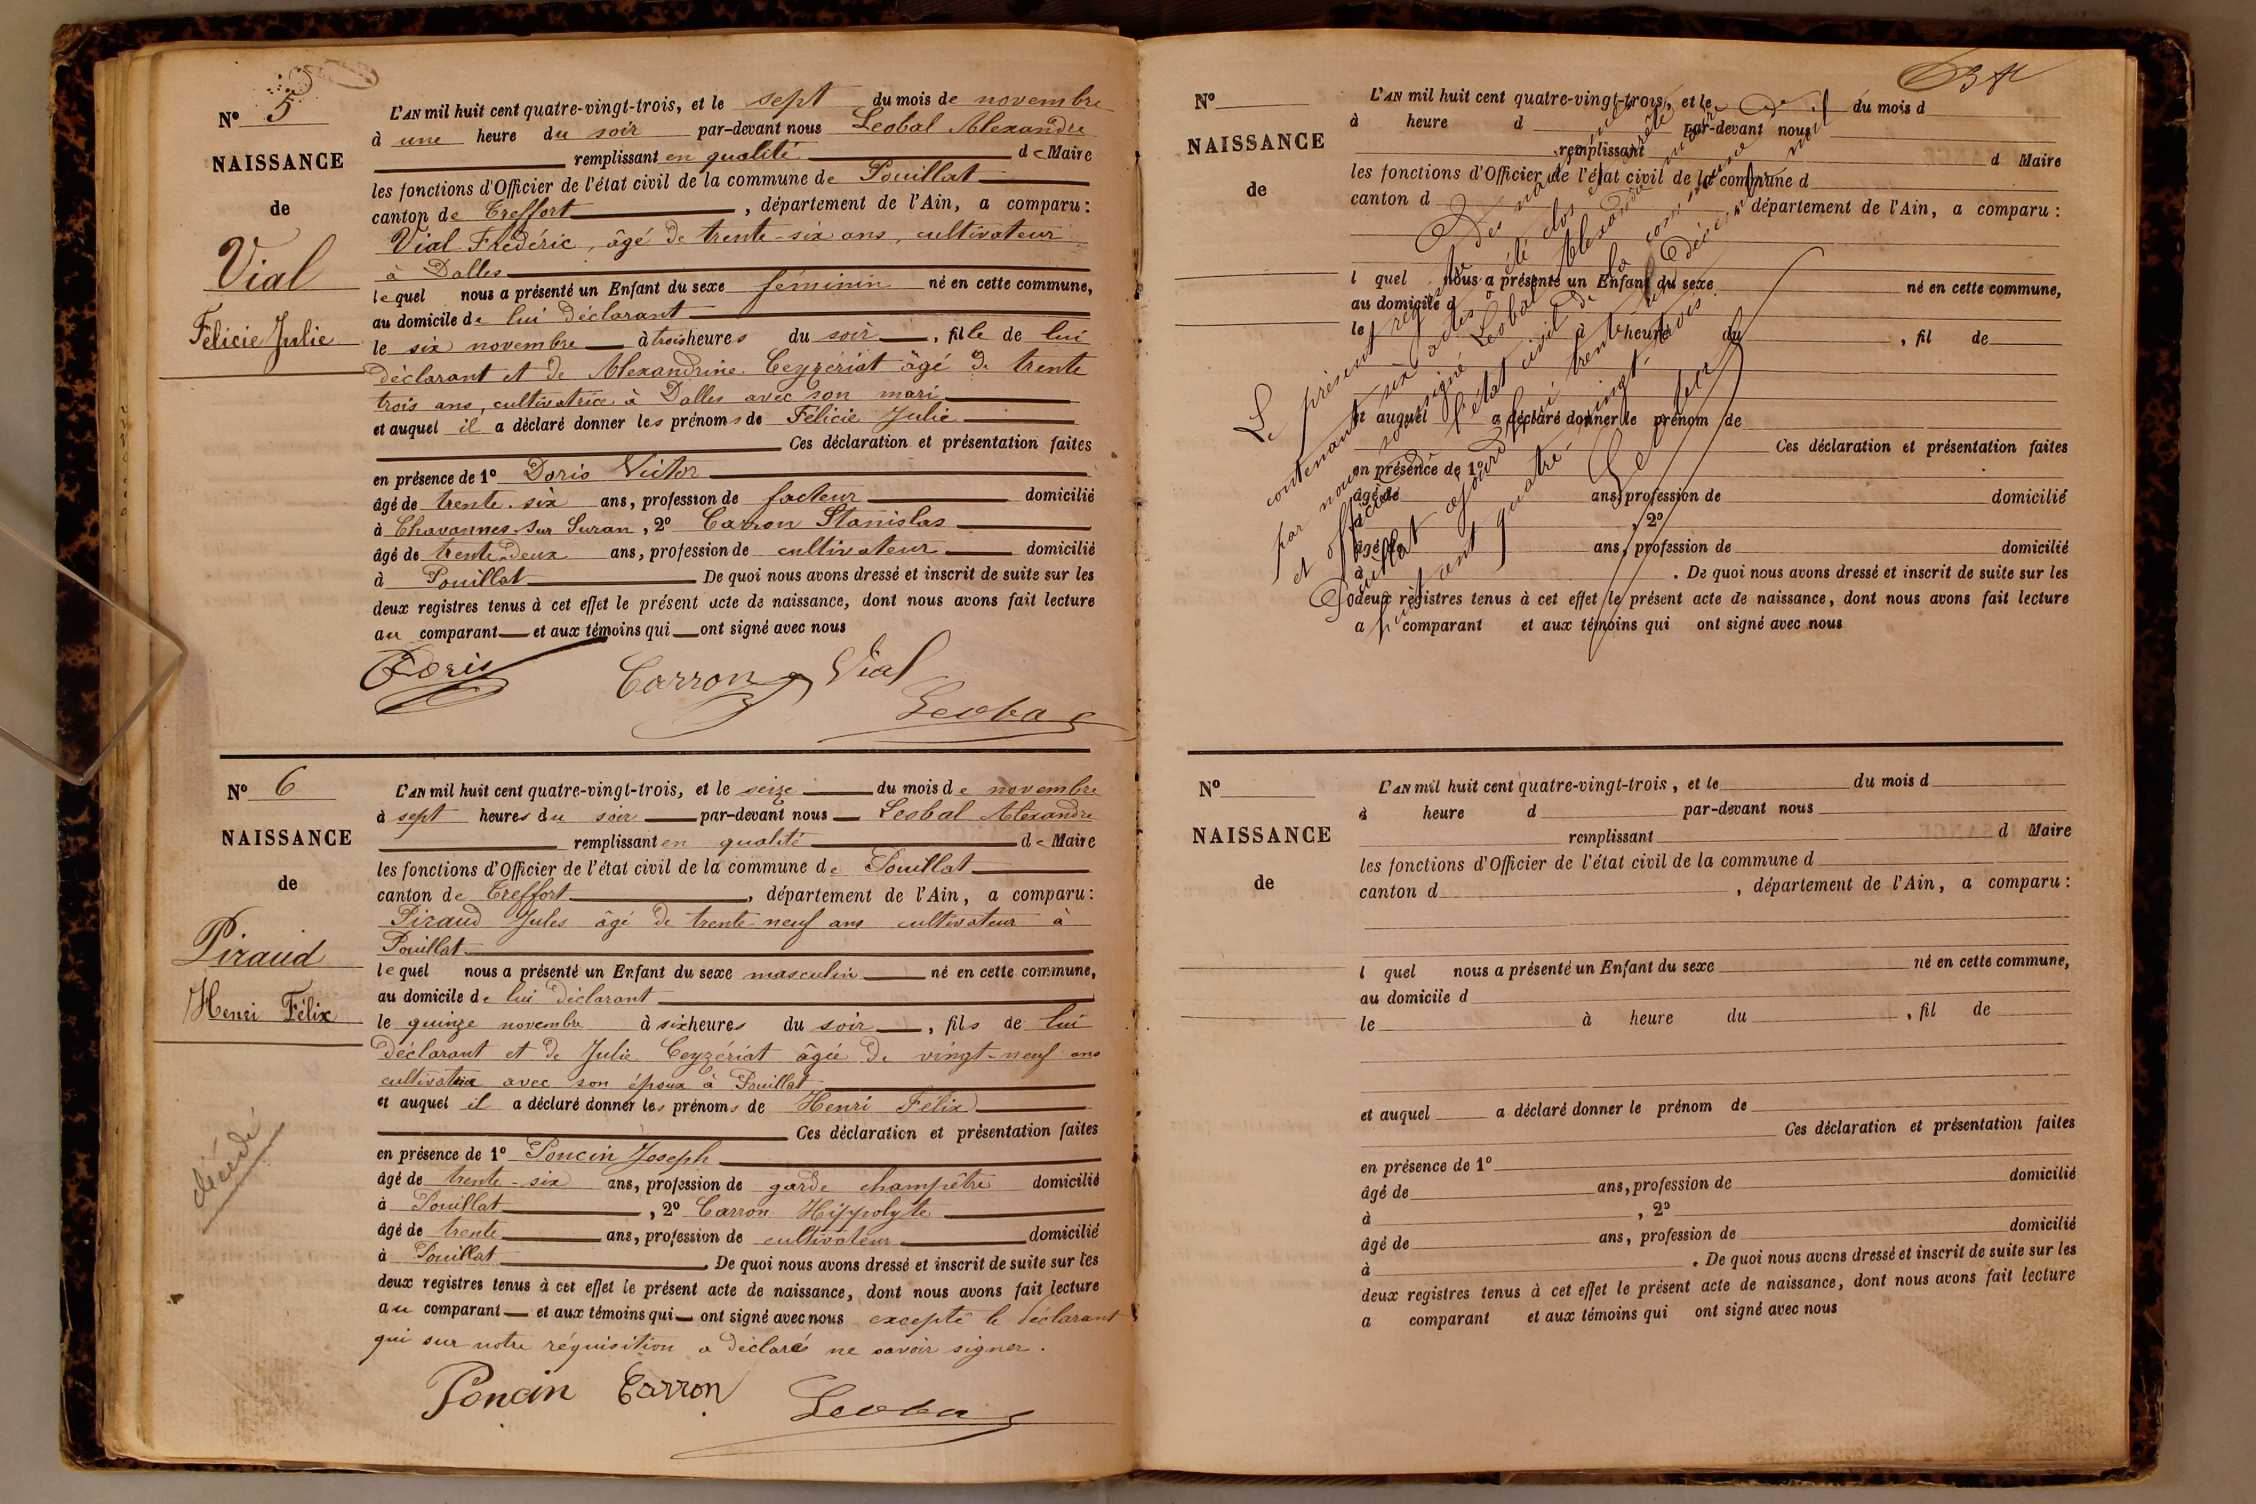 N° 5
NAISSANCE
de
Vial
Félicie Julie
L'AN mil huit cent quatre-vingt-trois, et le sept du mois de novembre
à une heure du soir par-devant nous Leobal Alexandre
remplissant en qualité de Maire
les fonctions d'Officier de l'état civil de la commune de Pouillat
canton de Treffort, département de l'Ain, a comparu:
Vial Frédéric, âgé de trente-six ans, cultivateur
à Dalles
lequel nous a présenté un Enfant du sexe féminin né en cette commune,
au domicile de lui déclarant
le six novembre à trois heures du soir, fille de lui
déclarant et de Alexandrine Ceyzériat âgé de trente
trois ans, cultivatrice à Dalles avec son mari
et auquel il a déclaré donner les prénoms de Félicie Julie
Ces déclaration et présentation faites
en présence de 1° Doris Victor
âgé de trente-six ans, profession de facteur domicilié
à Chavannes sur Suran, 2° Carron Stanislas
âgé de trente-deux ans, profession de cultivateur domicilié
à Pouillat De quoi nous avons dressé et inscrit de suite sur les
deux registres tenus à cet effet le présent acte de naissance, dont nous avons fait lecture
au comparant et aux témoins qui ont signé avec nous
Doris Carron Vial
Leobal
N° 6
NAISSANCE
de
Piraud
Henri Félix
décédé
L'AN mil huit cent quatre-vingt-trois, et le seize du mois de novembre
à sept heures du soir par-devant nous Leobal Alexandre
remplissant en qualité de Maire
les fonctions d'Officier de l'état civil de la commune de Pouillat
canton de Treffort, département de l'Ain, a comparu:
Piraud Jules âgé de trente-neuf ans cultivateur à
Pouillat
lequel nous a présenté un Enfant du sexe masculin né en cette commune,
au domicile de lui déclarant
le quinze novembre à six heures du soir, fils de lui
déclarant et de Julie Ceyzériat âgée de vingt-neuf ans
cultivatrice avec son époux à Pouillat
et auquel il a déclaré donner les prénoms de Henri Félix
Ces déclaration et présentation faites
en présence de 1° Poncin Joseph
âgé de trente-six ans, profession de garde champêtre domicilié
à Pouillat, 2° Carron Hippolyte
âgé de trente ans, profession de cultivateur domicilié
à Pouillat. De quoi nous avons dressé et inscrit de suite sur les
deux registres tenus à cet effet le présent acte de naissance, dont nous avons fait lecture
au comparant et aux témoins qui ont signé avec nous excepté le déclarant
qui sur notre réquisition a déclaré ne savoir signer.
Poncin Carron Leobal
N°
NAISSANCE
de
L'AN mil huit cent quatre-vingt-trois, et le du mois d
à heure d par-devant nous
remplissant d Maire
les fonctions d'Officier de l'état civil de la commune d
canton d, département de l'Ain, a comparu:
l quel nous a présenté un Enfant du sexe né en cette commune,
au domicile d
le à heure du, fil de
et auquel a déclaré donner le prénom de
Ces déclaration et présentation faites
en présence de 1°
âgé de ans, profession de domicilié
à, 2°
âgé de ans, profession de domicilié
à. De quoi nous avons dressé et inscrit de suite sur les
deux registres tenus à cet effet le présent acte de naissance, dont nous avons fait lecture
a comparant et aux témoins qui ont signé avec nous
Le présent registre des naissances
contenant six actes a été clos et arrêté
par nous soussigné Leobal Alexandre maire
et officier de l'état civil de la commune de
Pouillat aujourd'hui trente un Décembre mil
huit cent quatre-vingt-trois
Leobal
N°
NAISSANCE
de
L'AN mil huit cent quatre-vingt-trois, et le du mois d
à heure d par-devant nous
remplissant d Maire
les fonctions d'Officier de l'état civil de la commune d
canton d, département de l'Ain, a comparu:
l quel nous a présenté un Enfant du sexe né en cette commune,
au domicile d
le à heure du, fil de
et auquel a déclaré donner le prénom de
Ces déclaration et présentation faites
en présence de 1°
âgé de ans, profession de domicilié
à, 2°
âgé de ans, profession de domicilié
à. De quoi nous avons dressé et inscrit de suite sur les
deux registres tenus à cet effet le présent acte de naissance, dont nous avons fait lecture
a comparant et aux témoins qui ont signé avec nous